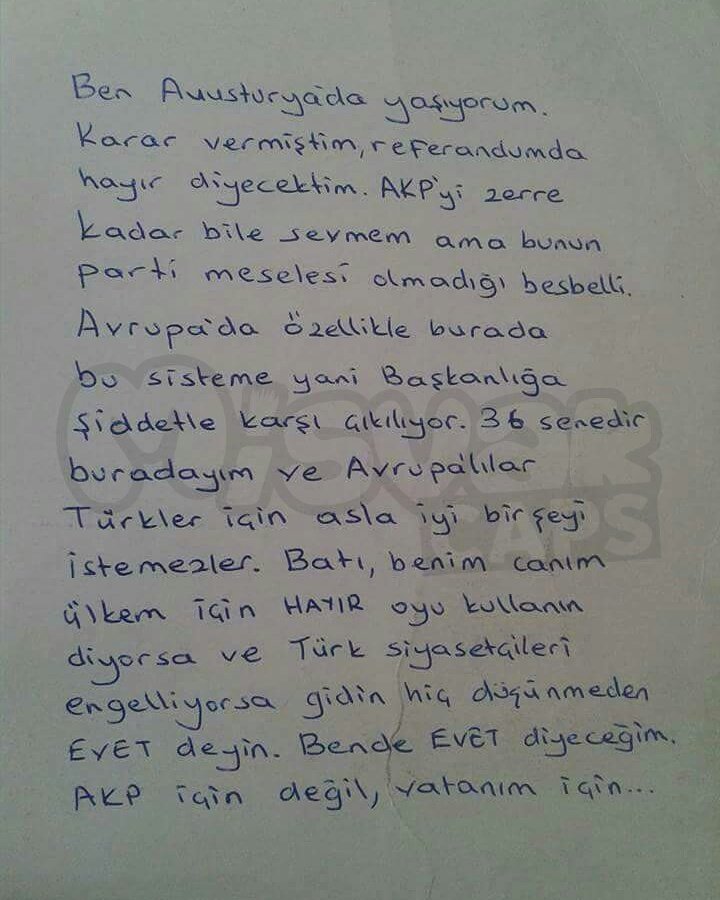 Ben Auusturya'da yaşıyorum.
Karar vermiştim, referandumda
hayır diyecektim. AKP'yi zerre
kadar bile sevmem ama bunun
parti meselesi olmadığı besbelli.
Avrupa'da özellikle burada
bu sisteme yani Başkanlığa
şiddetle karşı çıkılıyor. 36 senedir
buradayım ve Avrupa'lılar
Türkler için asla iyi bir şeyi
istemezler. Batı, benim canım
ülkem için HAYIR oyu kullanın
diyorsa ve Türk siyasetçileri
engelliyorsa gidin hiç düşünmeden
EVET deyin. Bende EVET diyeceğim.
AKP için değil, vatanım için...
Misvak
CAPS